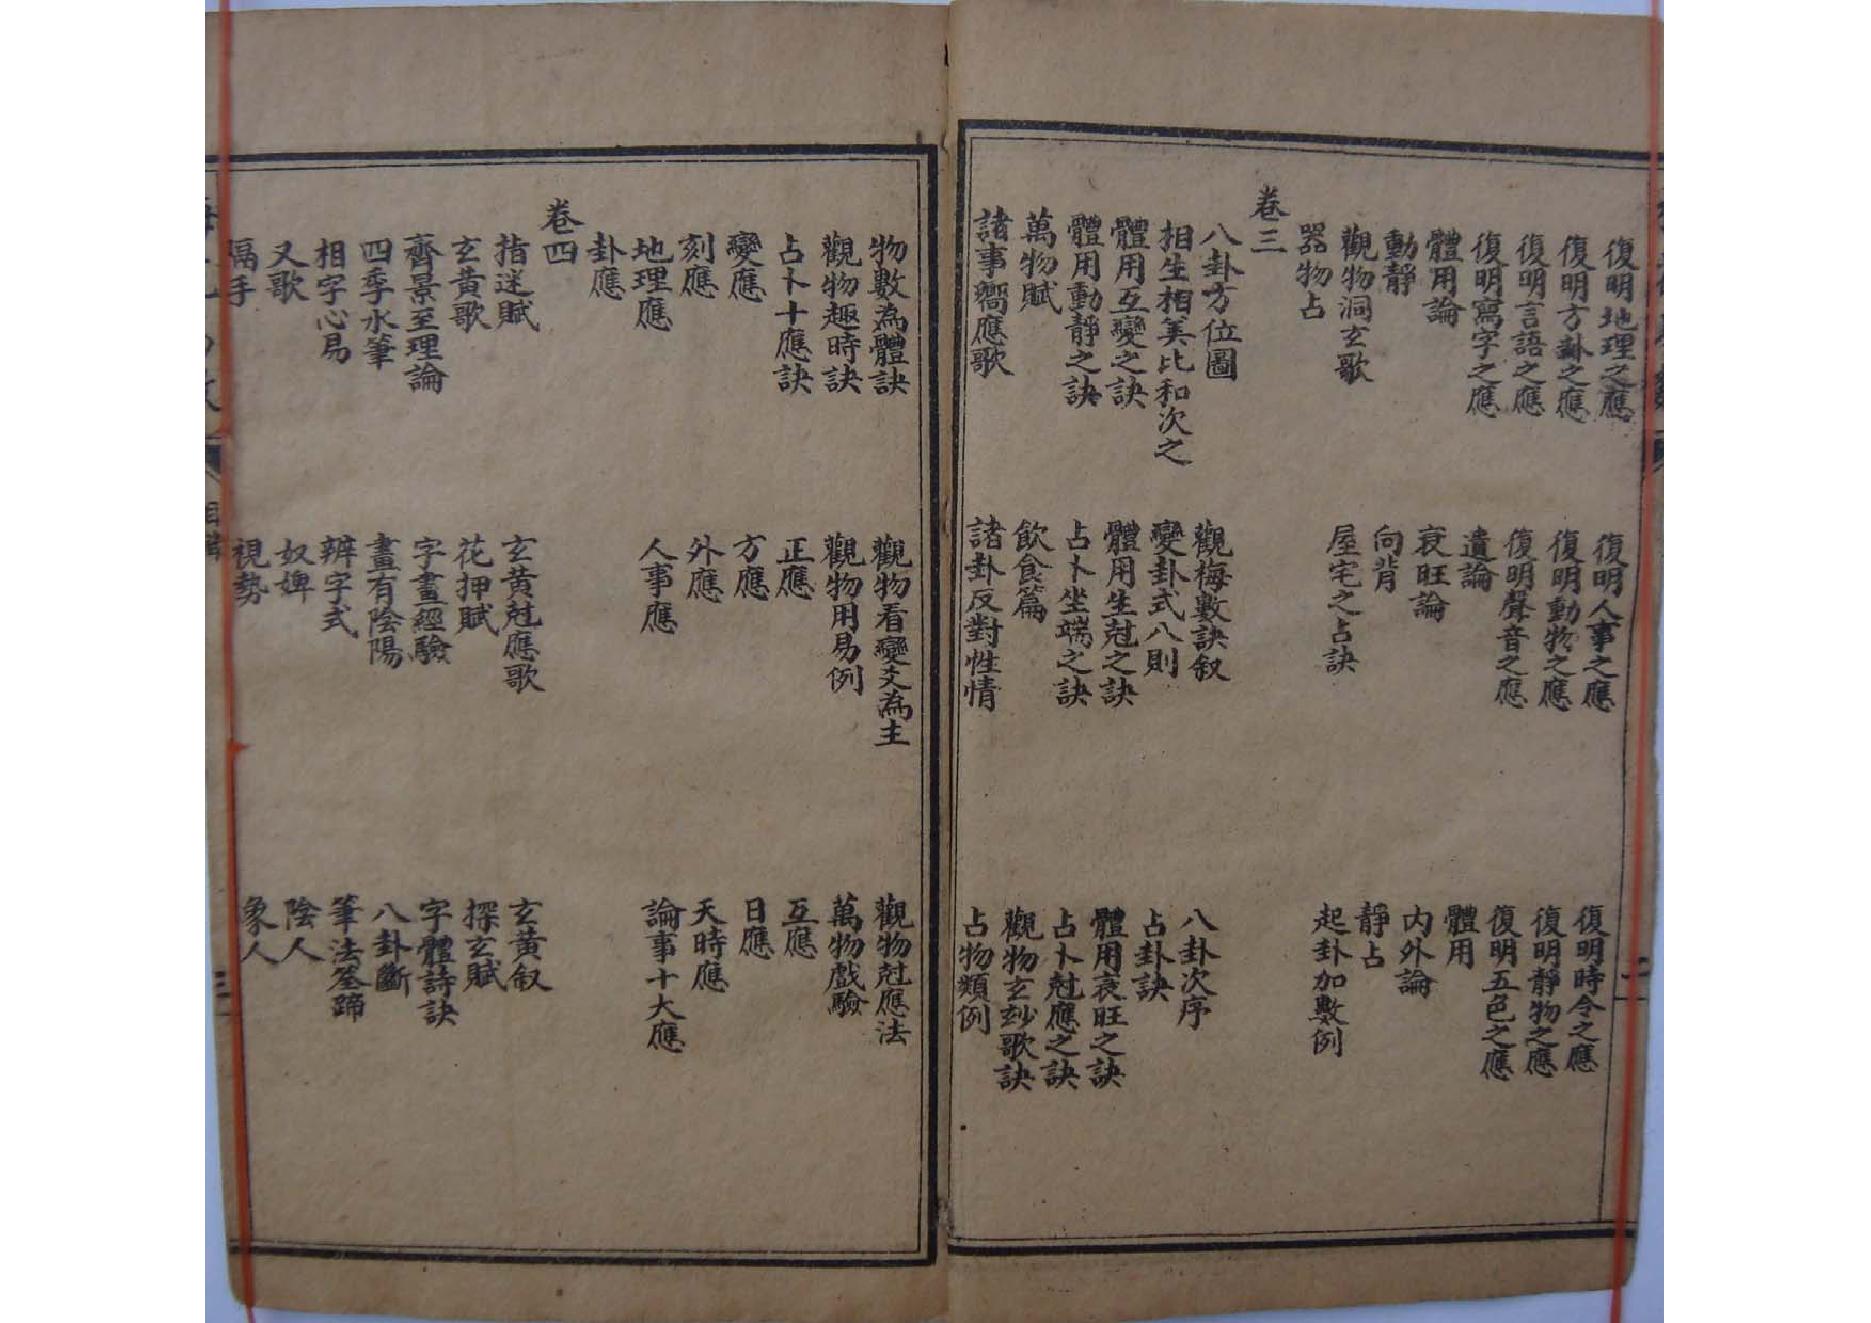 復明地理之應 復明人事之應 復明時令之應
復明方卦之應 復明動物之應 復明靜物之應
復明言語之應 復明聲音之應 復明五色之應
復明寫字之應 遺論 體用
體用論 衰旺論 內外論
動靜 向背 靜占
觀物洞玄歌 屋宅之占訣 起卦加數例
器物占
卷三
八卦方位圖 觀梅數訣叙 八卦次序
相生相尅比和次之 變卦式八則 占卦訣
體用互變之訣 體用生尅之訣 體用衰旺之訣
體用動靜之訣 占卜坐端之訣 占卜尅應之訣
萬物賦 飲食篇 觀物玄玅歌訣
諸事響應歌 諸卦反對性情 占物類例
物數為體訣 觀物看變爻為主 觀物尅應法
觀物趣時訣 觀物用易例 萬物戲驗
占卜十應訣 正應 互應
變應 方應 日應
刻應 外應 天時應
地理應 人事應 論事十大應
卦應
卷四
指迷賦 玄黃尅應歌 玄黃叙
玄黃歌 花押賦 探玄賦
齊景至理論 字畫經驗 字體詩訣
四季水筆 畫有陰陽 八卦斷
相字心易 辨字式 筆法筌蹄
又歌 奴婢 陰人
隔手 視勢 象人